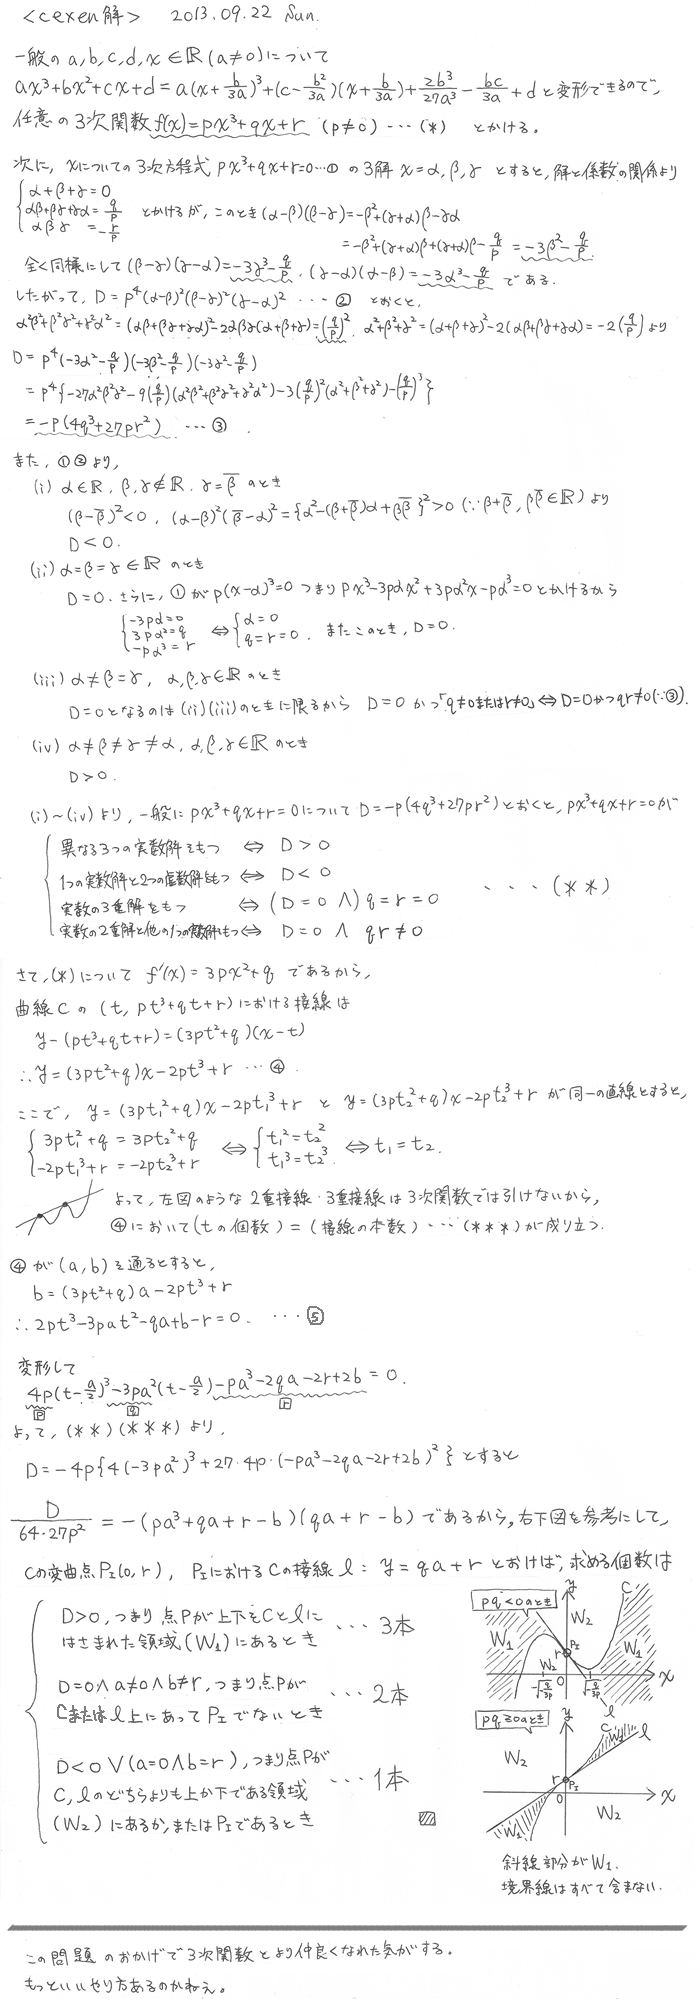 <cexen解> 2013.09.22 Sun.
一般の a,b,c,d,x∈ℝ(a≠0)について
ax³+bx²+cx+d=a(x+b/3a)³+(c-b²/3a)(x+b/3a)+2b³/27a³-bc/3a+d と変形できるので,
任意の3次関数f(x)=px³+qx+r (p≠0)…(*) とかける。
次に, xについての3次方程式 px³+qx+r=0…① の3解 x=α,β,γ とすると, 解と係数の関係より
{α+β+γ=0
αβ+βγ+γα=q/p とかけるが, このとき (α-β)(β-γ)=-β²+(γ+α)β-γα
αβγ=-r/p
=-β²+(γ+α)β+(γ+α)β-q/p=-3β²-q/p.
全く同様にして (β-γ)(γ-α)=-3γ³-q/p, (γ-α)(α-β)=-3α³-q/p である.
したがって, D=p⁴(α-β)²(β-γ)²(γ-α)² …② とおくと,
α²β²+β²γ²+γ²α²=(αβ+βγ+γα)²-2αβγ(α+β+γ)=(q/p)², α²+β²+γ²=(α+β+γ)²-2(αβ+βγ+γα)=-2(q/p) より
D=p⁴(-3α²-q/p)(-3β²-q/p)(-3γ²-q/p)
=p⁴{-27α²β²γ²-9(q/p)(α²β²+β²γ²+γ²α²)-3(q/p)²(α²+β²+γ²)-(q/p)³}
=-p(4q³+27pr²) …③.
また, ①②より,
(i) α∈ℝ, β,γ∉ℝ, γ=β̄ のとき
(β-β̄)²<0, (α-β)²(β̄-α)²={α²-(β+β̄)α+ββ̄}²>0 (∵β+β̄, ββ̄∈ℝ) より
D<0.
(ii) α=β=γ∈ℝ のとき
D=0. さらに, ①がp(x-α)³=0 つまり px³-3pαx²+3pα²x-pα³=0とかけるから
{-3pα=0
3pα²=q ⇔ {α=0
-pα³=r q=r=0. またこのとき, D=0.
(iii) α≠β=γ, α,β,γ∈ℝ のとき
D=0となるのは(ii)(iii)のときに限るから D=0かつ「q≠0またはr≠0」⇔D=0かつqr≠0(∵③).
(iv) α≠β≠γ≠α, α,β,γ∈ℝ のとき
D>0.
(i)~(iv)より, 一般に px³+qx+r=0について D=-p(4q³+27pr²)とおくと, px³+qx+r=0が
{異なる3つの実数解をもつ ⇔ D>0
1つの実数解と2つの虚数解をもつ ⇔ D<0
実数の3重解をもつ ⇔ (D=0∧)q=r=0 …(**)
実数の2重解と他の1つの実数解をもつ⇔ D=0∧qr≠0
さて, (*)について f'(x)=3px²+q であるから,
曲線Cの(t, pt³+qt+r)における接線は
y-(pt³+qt+r)=(3pt²+q)(x-t)
∴y=(3pt²+q)x-2pt³+r …④.
ここで, y=(3pt₁²+q)x-2pt₁³+r と y=(3pt₂²+q)x-2pt₂³+r が同一の直線とすると,
{3pt₁²+q=3pt₂²+q ⇔ {t₁²=t₂² ⇔ t₁=t₂.
-2pt₁³+r=-2pt₂³+r t₁³=t₂³
よって, 左図のような2重接線・3重接線は3次関数では引けないから,
④において(tの個数)=(接線の本数)…(***)が成り立つ.
④が(a,b)を通るとすると,
b=(3pt²+q)a-2pt³+r
∴2pt³-3pat²-qa+b-r=0. …⑤
変形して
4p(t-a/2)³-3pa²(t-a/2)-pa³-2qa-2r+2b=0.
p q r
よって, (**)(***)より,
D=-4p{4(-3pa²)³+27・4p・(-pa³-2qa-2r+2b)²}とすると
D/64・27p²=-(pa³+qa+r-b)(qa+r-b)であるから, 右下図を参考にして,
Cの変曲点P_I(0,r), P_IにおけるCの接線l: y=qa+rとおけば, 求める個数は
{D>0, つまり点Pが上下をCとlに
はさまれた領域(W₁)にあるとき …3本
D=0∧a≠0∧b≠r, つまり点Pが
Cまたはl上にあってP_Iでないとき …2本
D<0∨(a=0∧b=r), つまり点Pが
C,lのどちらよりも上か下である領域 …1本
(W₂)にあるか, またはP_Iであるとき
pq<0のとき
y C W₂ W₁ r P_I W₂ W₁ 0 x -√q/3p √q/3p l
pq≧0のとき
y C W₁ l W₂ r P_I 0 x W₁ W₂
斜線部分がW₁.
境界線はすべて含まない.
この問題のおかげで3次関数とより仲良くなれた気がする。
もっといいやり方あるのかねぇ。